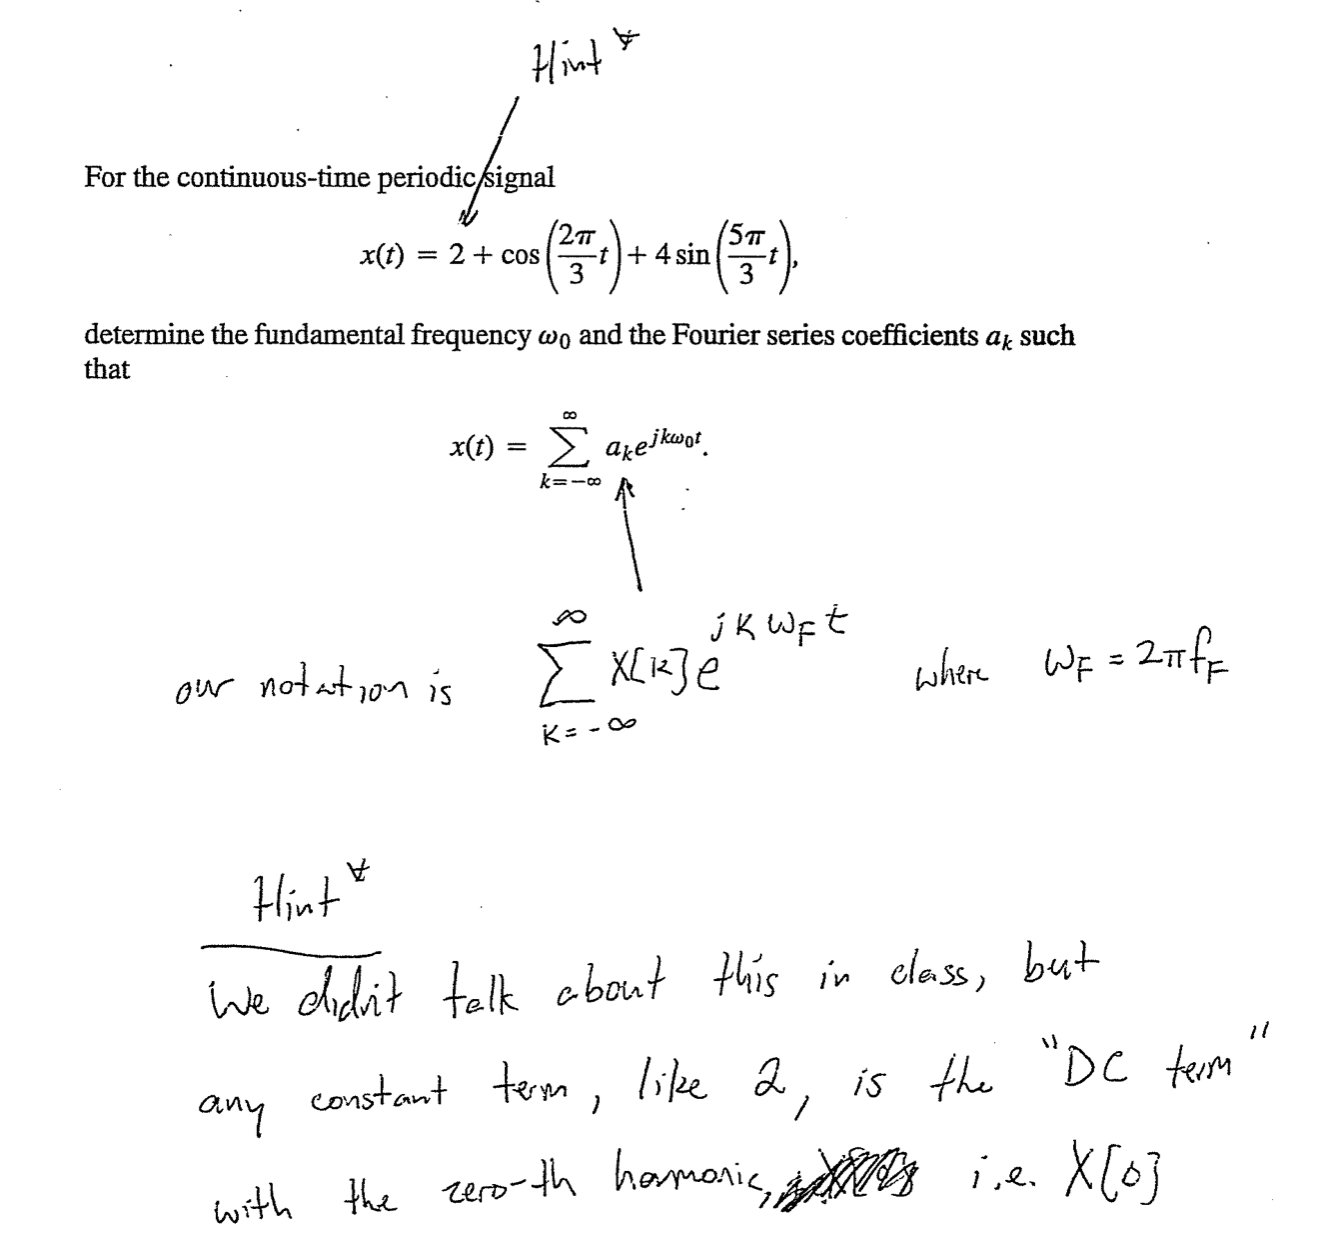 Hint *
For the continuous-time periodic signal
x(t) = 2 + cos(2π/3 t) + 4 sin(5π/3 t),
determine the fundamental frequency ω₀ and the Fourier series coefficients aₖ such
that
x(t) = ∑_{k=-∞}^{∞} aₖe^{jkω₀t}.
our notation is ∑_{K=-∞}^{∞} X[k]e^{jKω_F t} where ω_F = 2πf_F
Hint *
We didn't talk about this in class, but
any constant term, like 2, is the "DC term"
with the zero-th harmonic, i.e. X[0]